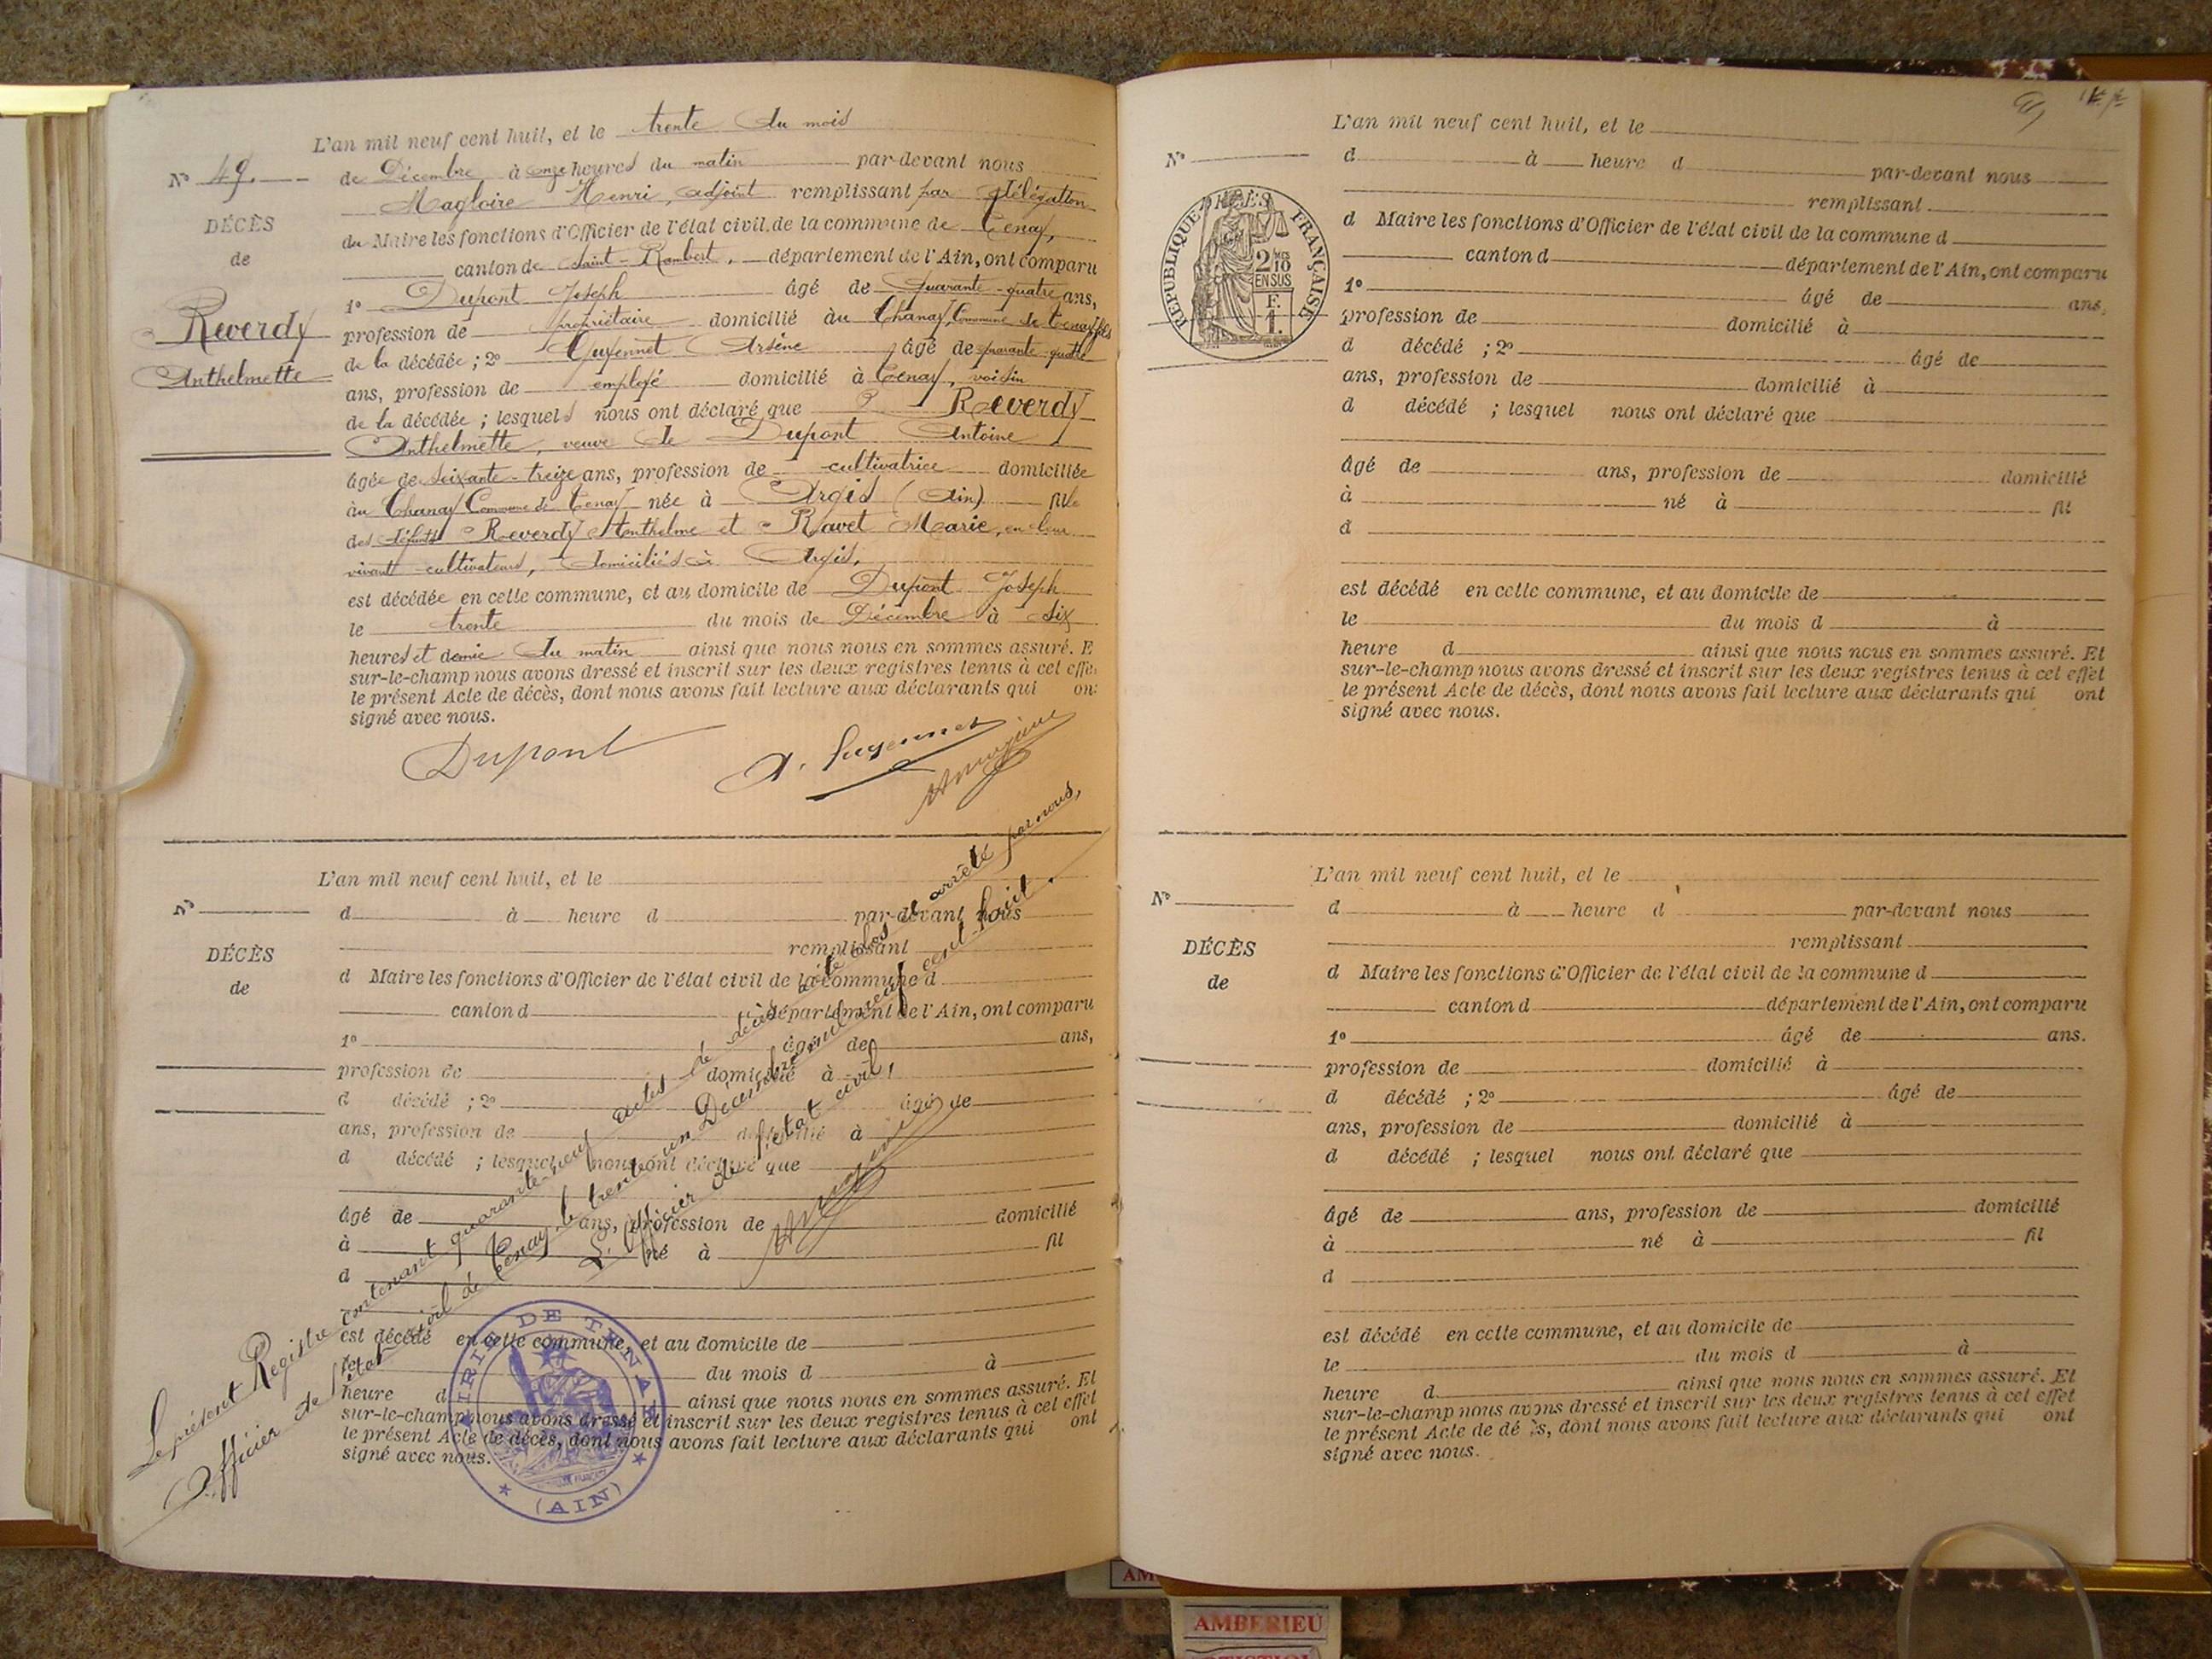 L'an mil neuf cent huit, et le trente du mois
N° 49.
de Décembre à onze heures du matin par-devant nous
Magloire Henri, adjoint remplissant par délégation
DÉCÈS
du Maire les fonctions d'Officier de l'état civil de la commune de Tenay,
de
canton de Saint-Rambert, département de l'Ain, ont comparu
1° Dupont Joseph âgé de quarante-quatre ans,
Reverdy
profession de propriétaire domicilié au Chanay, Commune de Tenay, fils
Anthelmette
de la décédée ; 2° Guyennet Arsène âgé de quarante-quatre
ans, profession de employé domicilié à Tenay, voisin
de la décédée ; lesquels nous ont déclaré que Reverdy
Anthelmette, veuve de Dupont Antoine
âgée de soixante-treize ans, profession de cultivatrice domiciliée
au Chanay Commune de Tenay née à Argis (Ain) fille
des défunts Reverdy Anthelme et Ravet Marie, en leur
vivant cultivateurs, domiciliés à Argis,
est décédée en cette commune, et au domicile de Dupont Joseph
le trente du mois de Décembre à six
heures et demie du matin ainsi que nous nous en sommes assuré. E
sur-le-champ nous avons dressé et inscrit sur les deux registres tenus à cet effe
le présent Acte de décès, dont nous avons fait lecture aux déclarants qui on
signé avec nous.
Dupont
A. Guyennet
L'an mil neuf cent huit, et le
N°
d à heure d par-devant nous
remplissant
DÉCÈS
d Maire les fonctions d'Officier de l'état civil de la commune d
de
canton d département de l'Ain, ont comparu
1° âgé de ans,
profession de domicilié à
d décédé ; 2° âgé de
ans, profession de domicilié à
d décédé ; lesquel nous ont déclaré que
âgé de ans, profession de domicilié
à né à fil
d
est décédé en cette commune, et au domicile de
le du mois d à
heure d ainsi que nous nous en sommes assuré. Et
sur-le-champ nous avons dressé et inscrit sur les deux registres tenus à cet effet
le présent Acte de décès, dont nous avons fait lecture aux déclarants qui ont
signé avec nous.
Le présent Registre contenant quarante-neuf actes de décès a été clos et arrêté par nous,
Officier de l'état civil de Tenay le trente-un Décembre mil neuf cent huit.
L'Officier de l'état civil,
MAIRIE DE TENAY
(AIN)
L'an mil neuf cent huit, et le
N°
d à heure d par-devant nous
remplissant
d Maire les fonctions d'Officier de l'état civil de la commune d
canton d département de l'Ain, ont comparu
RÉPUBLIQUE FRANÇAISE
2/10 EN SUS
F.
1.
1° âgé de ans,
profession de domicilié à
d décédé ; 2° âgé de
ans, profession de domicilié à
d décédé ; lesquel nous ont déclaré que
âgé de ans, profession de domicilié
à né à fil
d
est décédé en cette commune, et au domicile de
le du mois d à
heure d ainsi que nous nous en sommes assuré. Et
sur-le-champ nous avons dressé et inscrit sur les deux registres tenus à cet effet
le présent Acte de décès, dont nous avons fait lecture aux déclarants qui ont
signé avec nous.
L'an mil neuf cent huit, et le
N°
d à heure d par-devant nous
remplissant
DÉCÈS
d Maire les fonctions d'Officier de l'état civil de la commune d
de
canton d département de l'Ain, ont comparu
1° âgé de ans.
profession de domicilié à
d décédé ; 2° âgé de
ans, profession de domicilié à
d décédé ; lesquel nous ont déclaré que
âgé de ans, profession de domicilié
à né à fil
d
est décédé en cette commune, et au domicile de
le du mois d à
heure d ainsi que nous nous en sommes assuré. Et
sur-le-champ nous avons dressé et inscrit sur les deux registres tenus à cet effet
le présent Acte de dé ès, dont nous avons fait lecture aux déclarants qui ont
signé avec nous.
AM
AMBERIEU